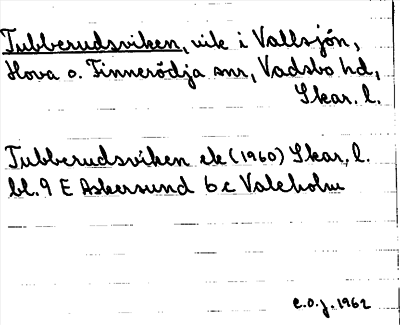 Tubberudsviken, vik i Vallsjön,
Hova o. Finnerödja snr, Vadsbo hd,
Skar. l.
Tubberudsviken ek (1960) Skar. l.
bl. 9 E Askersund 6 c Valekolm
C.O.J. 1962